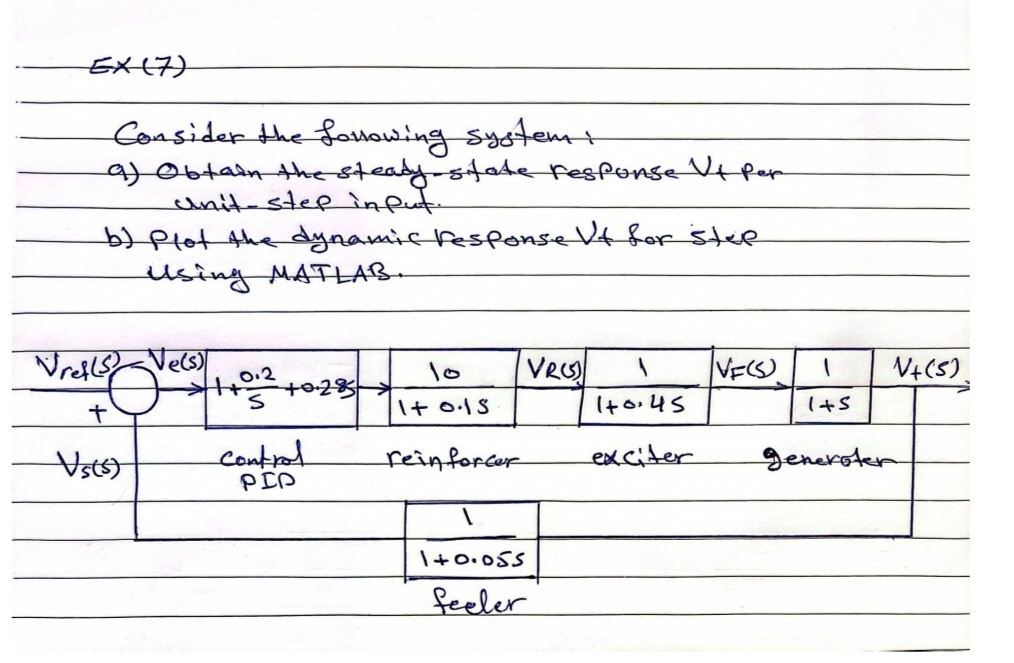 EX (7)
Consider the following system:
a) Obtain the steady-state response Vt per
unit-step input.
b) Plot the dynamic response Vt for step
using MATLAB.
Vref(S) - Ve(S) 1+ 0.2/S +0.28S 10/1+0.1S VR(S) 1/1+0.4S VF(S) 1/1+S Vt(S)
+
Vs(S) control reinforcer exciter generoter
PID
1/1+0.05S
feeler